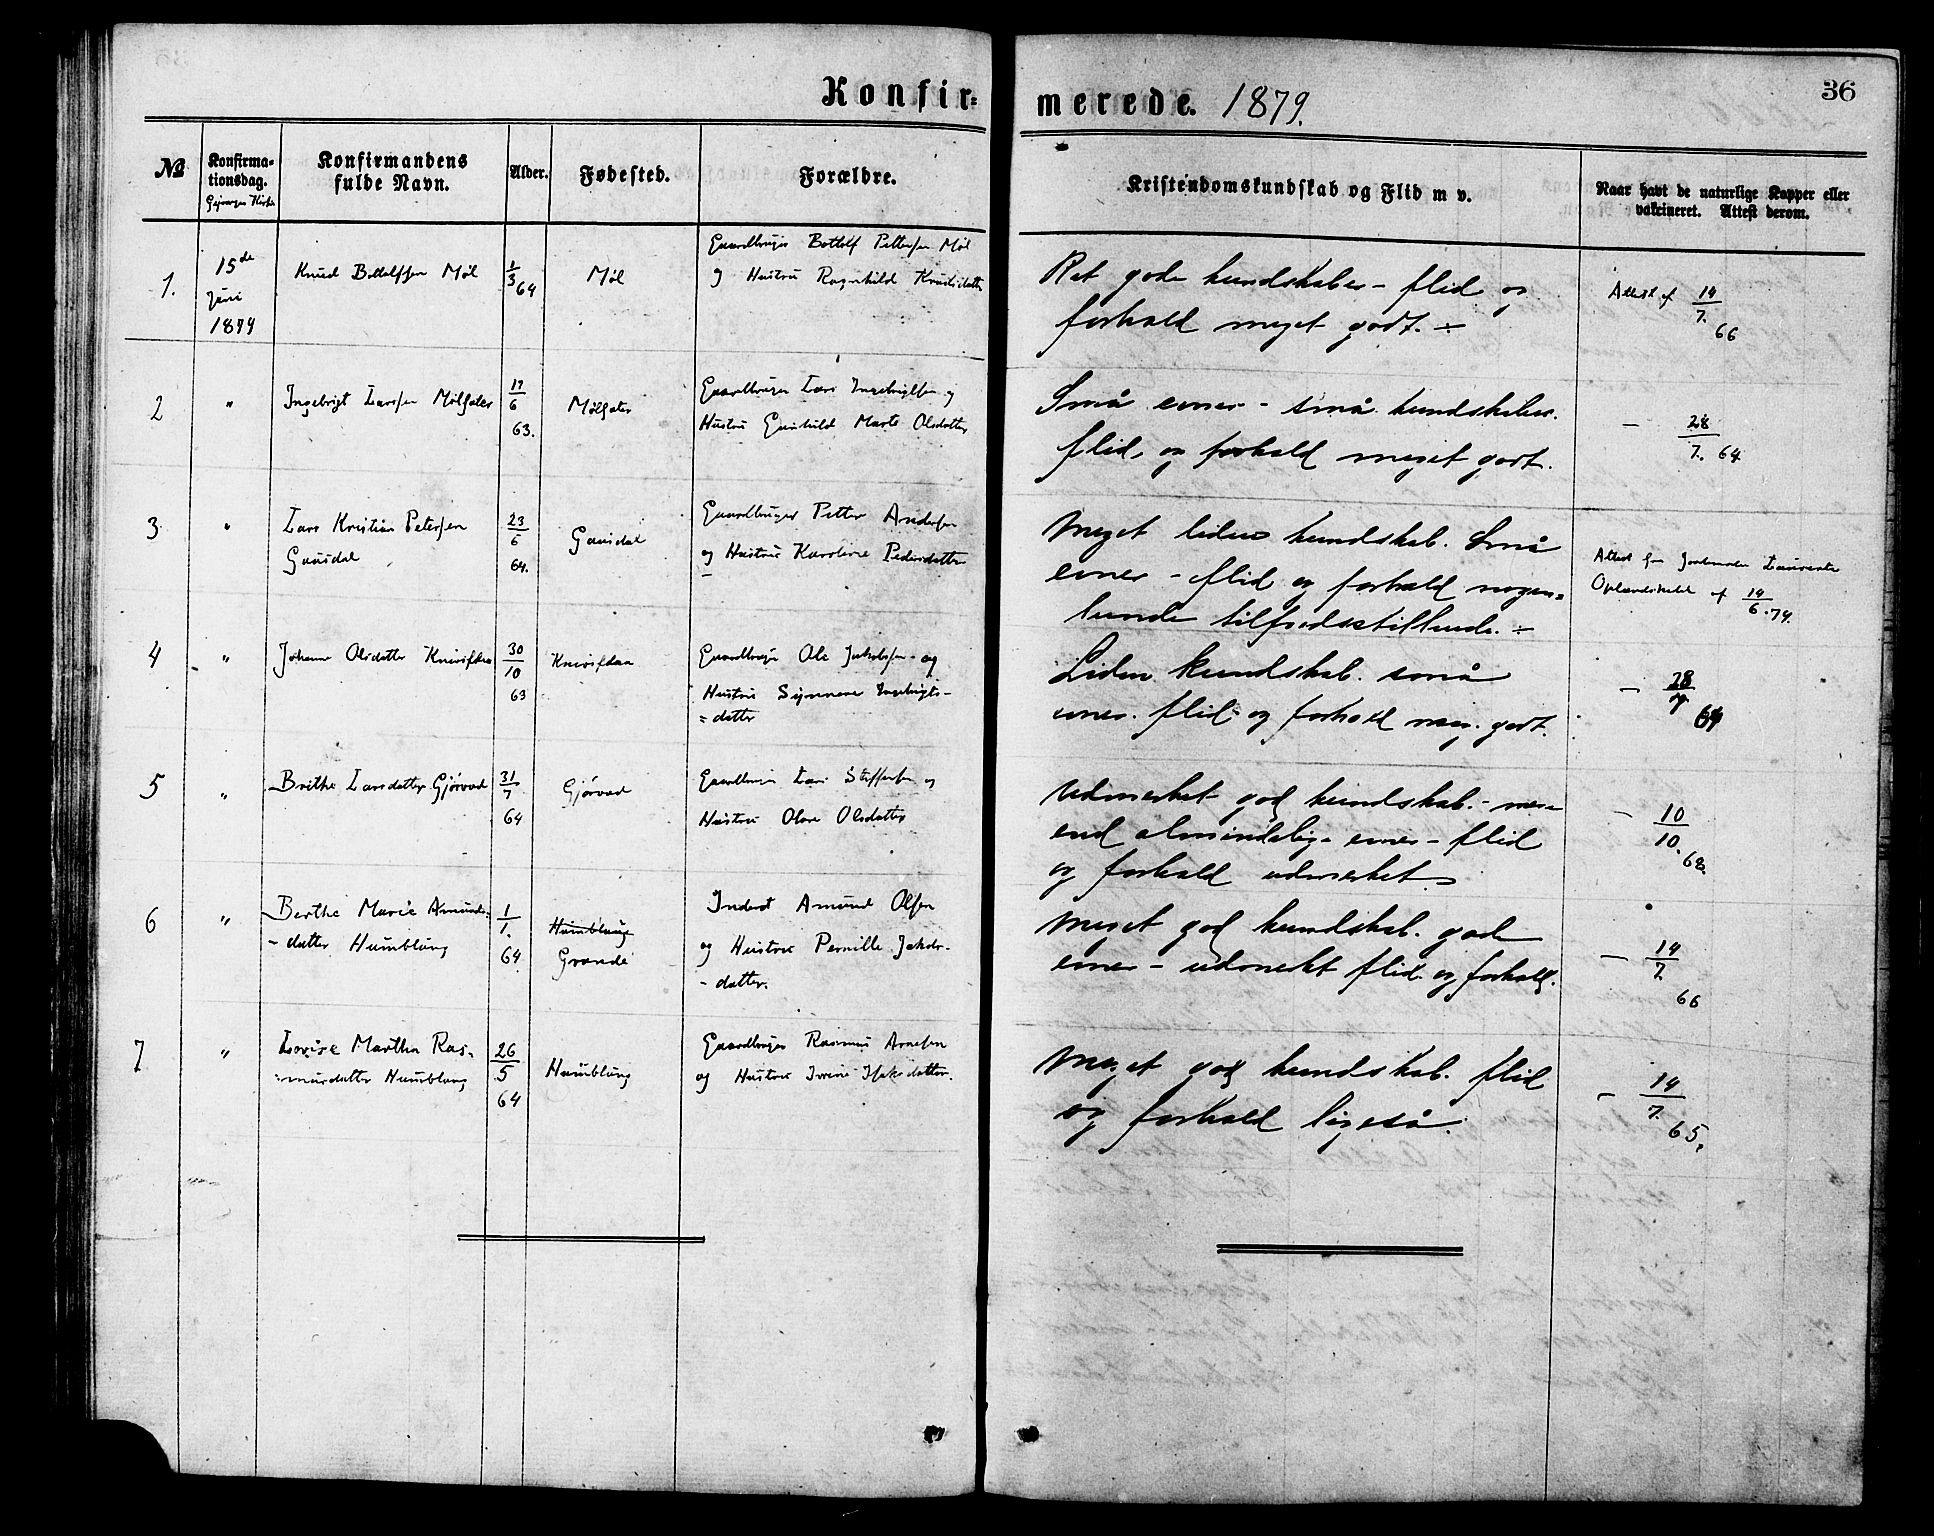 Konfir=
merede. 1879.
36
№
Konfirma-
tionsdag.
Konfirmandens
fulde Navn.
Alder.
Fødested.
Forældre.
Kristendomskundskab og Flid m v.
Naar havt de naturlige Kopper eller
vakcineret. Attest derom.
1.
15de
Juni
1879
Knud Bottolfsen Møl
1/3 64
Møl
Gaardbruger Bottolf Pettersen Møl
og Hustru Ragnhild Knudsdatter
Ret gode kundskaber - flid og
forhold meget godt. ÷
Attest af 14/7. 66
2
"
Ingebrigt Larssen Mølsæter
17/6 63.
Mølsæter
Gaardbruger Lars Ingebrigtsen og
Hustru Gunhild Marte Olsdatter
Små evner - små kundskaber.
flid, og forhold meget godt.
- 28/7. 64
3.
"
Lars Kristian Petersen
Gausdal
23/6 64.
Gausdal
Gaardbruger Petter Andersen
og Hustru Karoline Pedersdatter
Meget liden kundskab. Små
evner - flid og forhold nogen=
lunde tilfredsstillende. ÷
Attest fra Jordemoder
af 14/6.74.
4
"
Johanne Olsdatter
30/10 63
Gaardbruger Ole Jakobsen og
Hustru Synneve Ingebrigts-
=datter
Liden kundskab. små
evner. flid og forhold meg. godt.
- 28/7 64
5
"
Brithe Larsdatter Gjørvad
31/7 64
Gjørvad
Gaardbruger Lars Steffensen og
Hustru Olave Olsdatter
Udmerket god kundskab. - mer
end almindelig evner - flid
og forhold udmerket
- 10/10. 68
6
"
Berthe Marie Amunds-
-datter Humblung
1/1. 64
Humblung
Grande
Inderst Amund Olsen
og Hustru Pernille Jakobs-
-datter.
Meget god kundskab. gode
evner - udmerket flid og forhold.
- 14/7. 66
7
"
Lovise Martha Ras-
:musdatter Humblung
26/5 64
Humblung
Gaardbruger Rasmus Arnesen
og Hustru Isaksdatter.
Meget god kundskab. flid
og forhold ligeså.
- 14/7. 65.